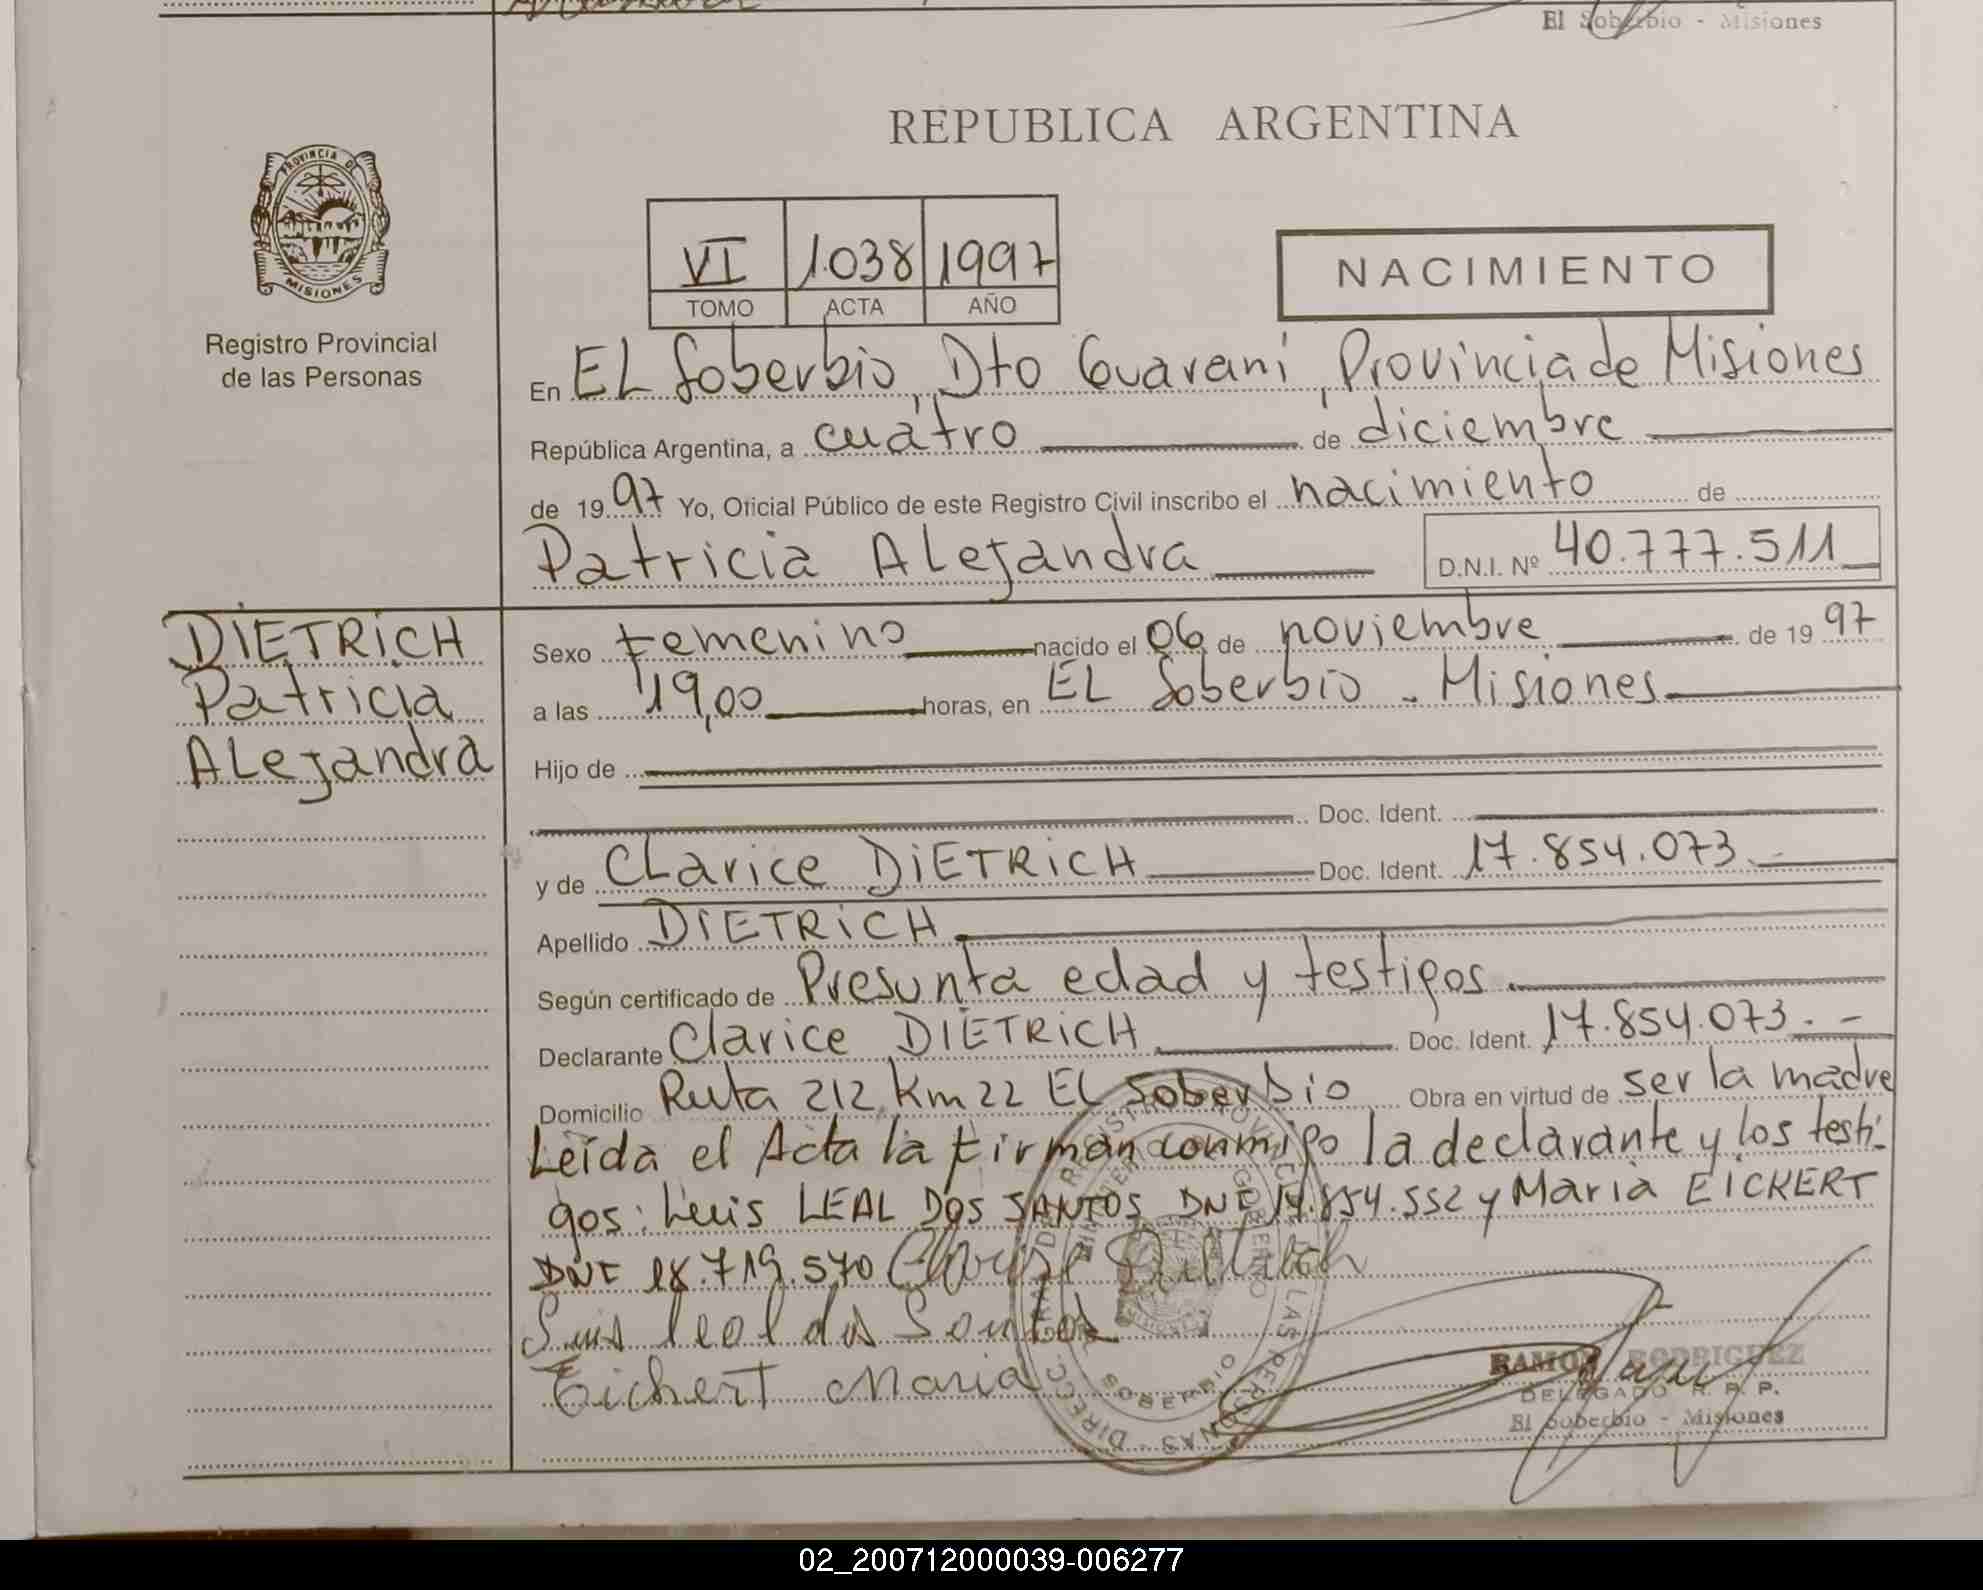 El Soberbio - Misiones
REPUBLICA ARGENTINA
PROVINCIA DE
MISIONES
Registro Provincial
de las Personas
VI 1.038 1997
TOMO ACTA AÑO
NACIMIENTO
En EL Soberbio, Dto Guaraní, Provincia de Misiones
República Argentina, a cuatro de diciembre
de 1997 Yo, Oficial Público de este Registro Civil inscribo el nacimiento de
Patricia ALejandra D.N.I. Nº 40.777.511
DIETRICH
Patricia
ALejandra
Sexo femenino nacido el 06 de noviembre de 1997
a las 19,00 horas, en EL Soberbio - Misiones
Hijo de
Doc. Ident.
y de CLarice DIETRICH Doc. Ident. 17.854.073.-
Apellido DIETRICH
Según certificado de Presunta edad y testigos.
Declarante Clarice DIETRICH Doc. Ident. 17.854.073.-
Domicilio Ruta 212 Km 22 EL Soberbio Obra en virtud de ser la madre
Leída el Acta la firman conmigo la declarante y los testi-
gos: Luis LEAL DOS SANTOS DNI 17.854.552 y Maria EICKERT
DNI 18.719.570
Luis Leal dos Santos
Eichert Maria
RAMON RODRIGUEZ
DELEGADO R. P. P.
El Soberbio - Misiones
SOBERBIO
02_200712000039-006277